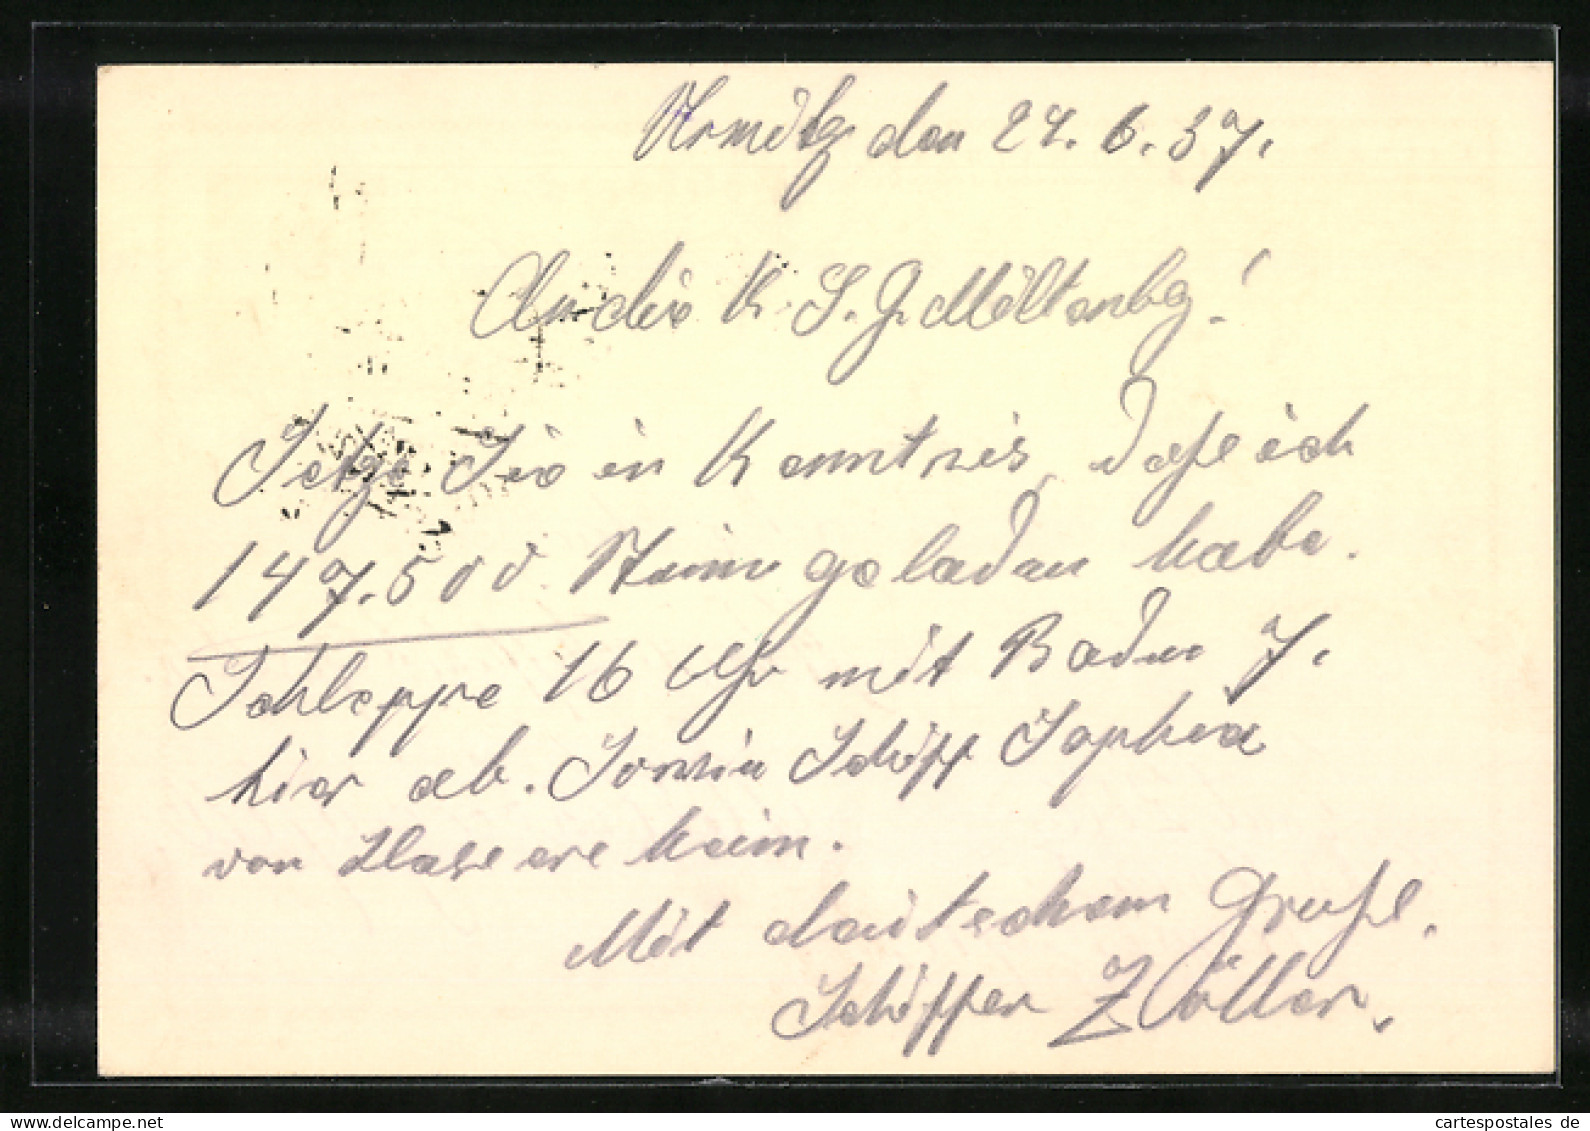 Urmitz den 24. 6. 37.
An die K. S. G. Miltenbg!
Setze Sie in Kenntnis, daß ich
147.500 Steine geladen habe.
Schleppe 16 Uhr mit Baden 7.
hier ab. Sowie Schiff Sophia
von
Mit deutschem Gruß.
Schiffer Zöller.
cartespostales de